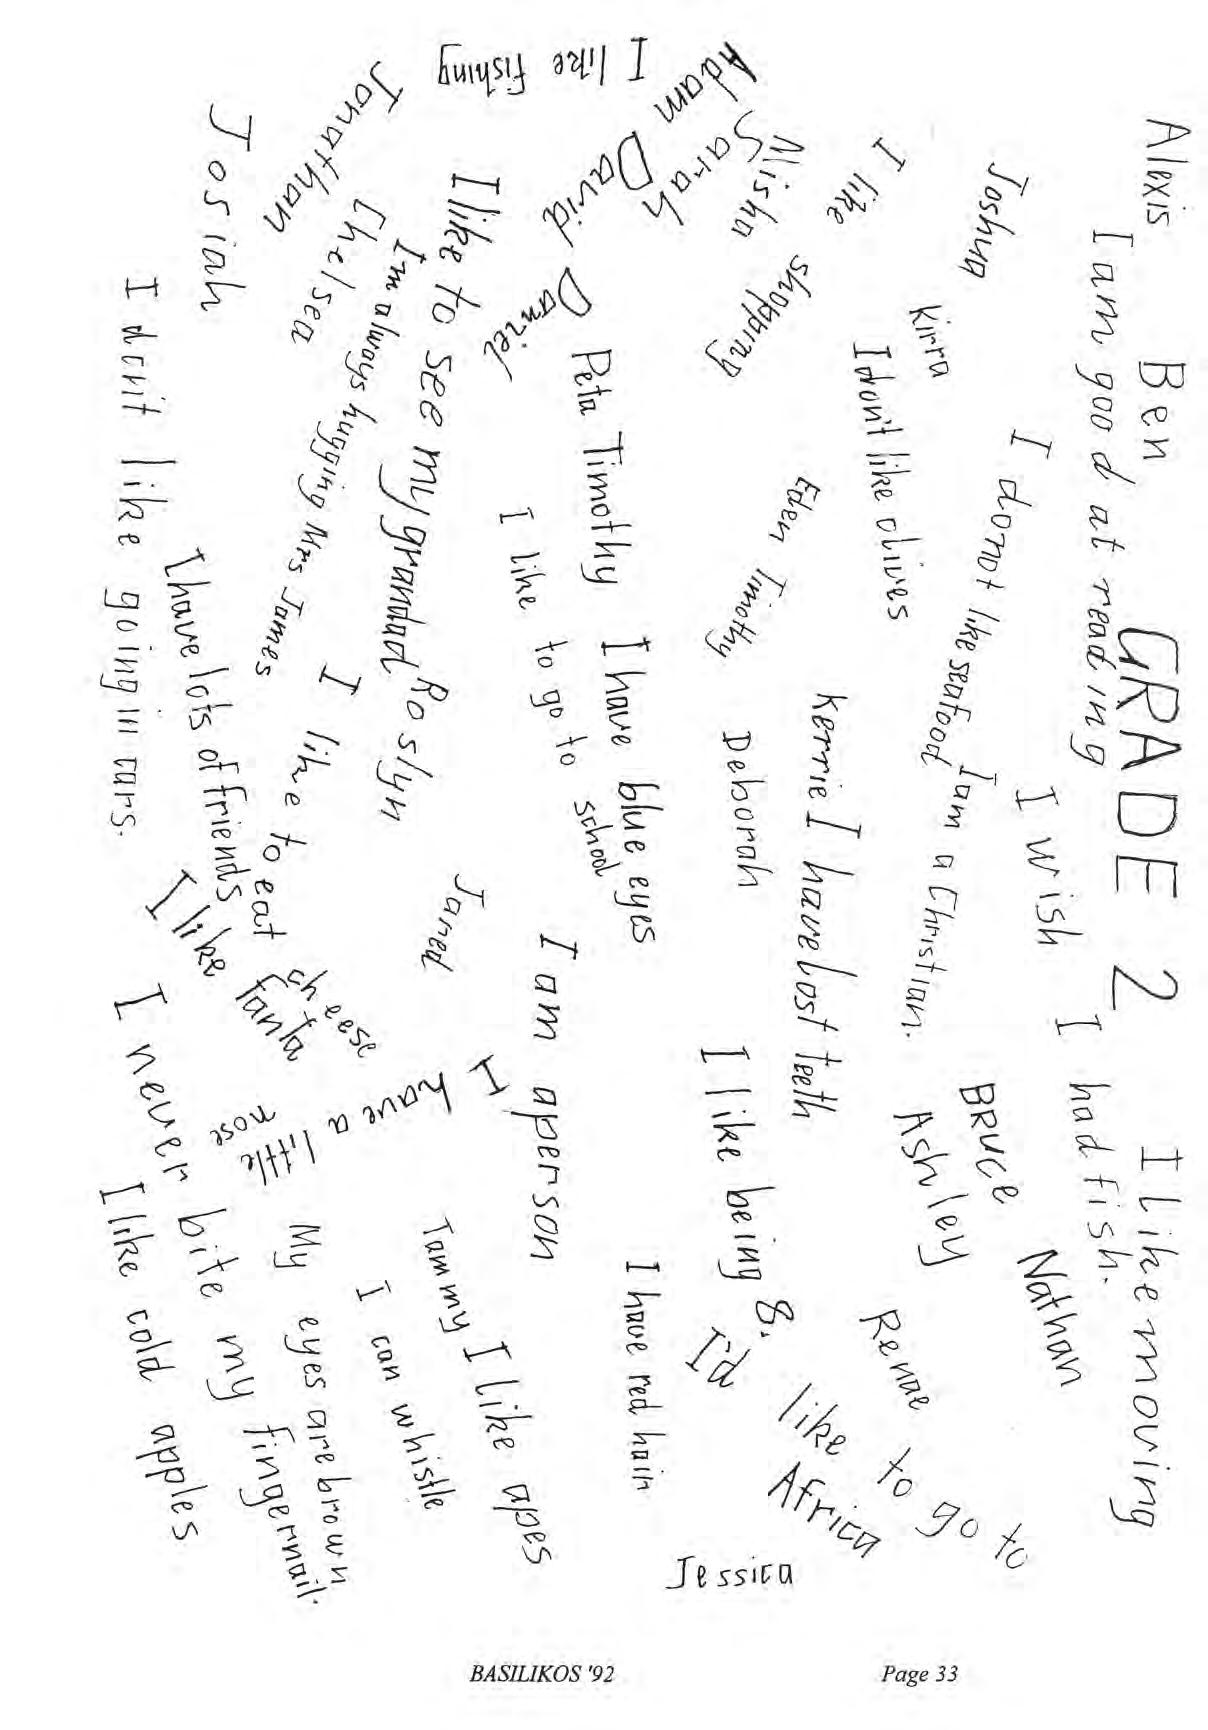 GRADE 2
Alexis
Ben
I like moving
I am good at reading
I had fish.
Joshua
I do not like seafood
I wish
Nathan
Kirra
I am a Christian.
BRUCE
Ashley
Renae
I like
shopping
I don't like olives
Kerrie
I have lost teeth
I'd like to go to
Africa
Nisha
Eden
Timothy
Deborah
I like being 8.
Adam
Sarah
David
Daniel
Peta
Timothy
I have blue eyes
I have red hair
Jessica
I like fishing
I like to go to
school
I am a person
I like to see my grandad
Roslyn
Jared
Tammy
I like apes
Jonathan
Chelsea
I'm always hugging Mrs James
I like to eat
cheese
I
have a
little
nose
I can whistle
My eyes are brown
Josiah
I have lots of friends
I like
fanta
I never bite my fingernail.
I don't like going in cars.
I like cold apples
BASILIKOS '92
Page 33